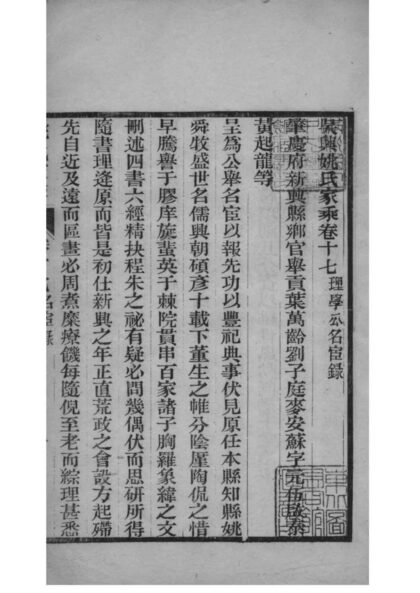 吳興姚氏家乘卷十七 理學公名宦錄
肇慶府新興縣鄉官舉貢葉萬齡劉子庭麥安蘇字元伍啟泰
黃起龍等
呈為公舉名宦以報先功以豐祀典事伏見原任本縣知縣姚
舜牧盛世名儒興朝碩彥十載下董生之帷分陰厪陶侃之惜
早騰譽于膠庠旋蜚英于棘院貫串百家諸子胸羅象緯之文
刪述四書六經精抉程朱之祕有疑必問幾偶伏而思研所得
隨書理逢原而皆是初仕新興之年正直荒政之會設方起殣
先自近及遠而區畫必周煮糜療饑每隨倪至老而綜理甚悉
名宦錄